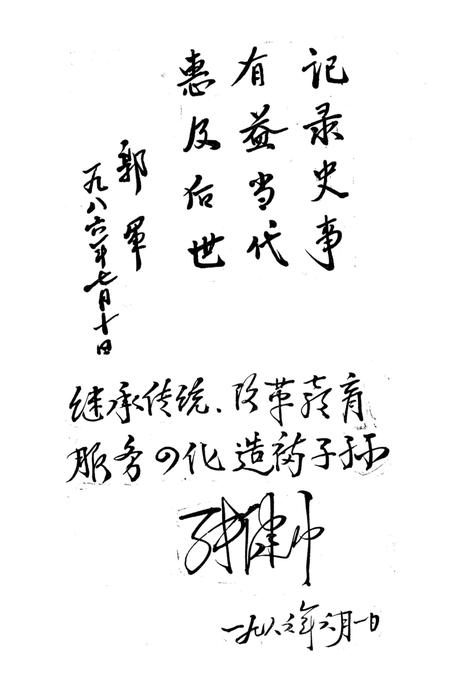 记录史事
有益当代
惠及后世
郭军
一九八六年七月十日
继承传统、改革教育
服务四化造福子孙
张健中
一九八六年六月一日